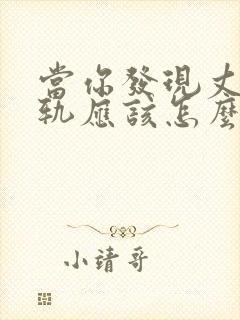 當你發現丈
軌應該怎麼
小靖哥